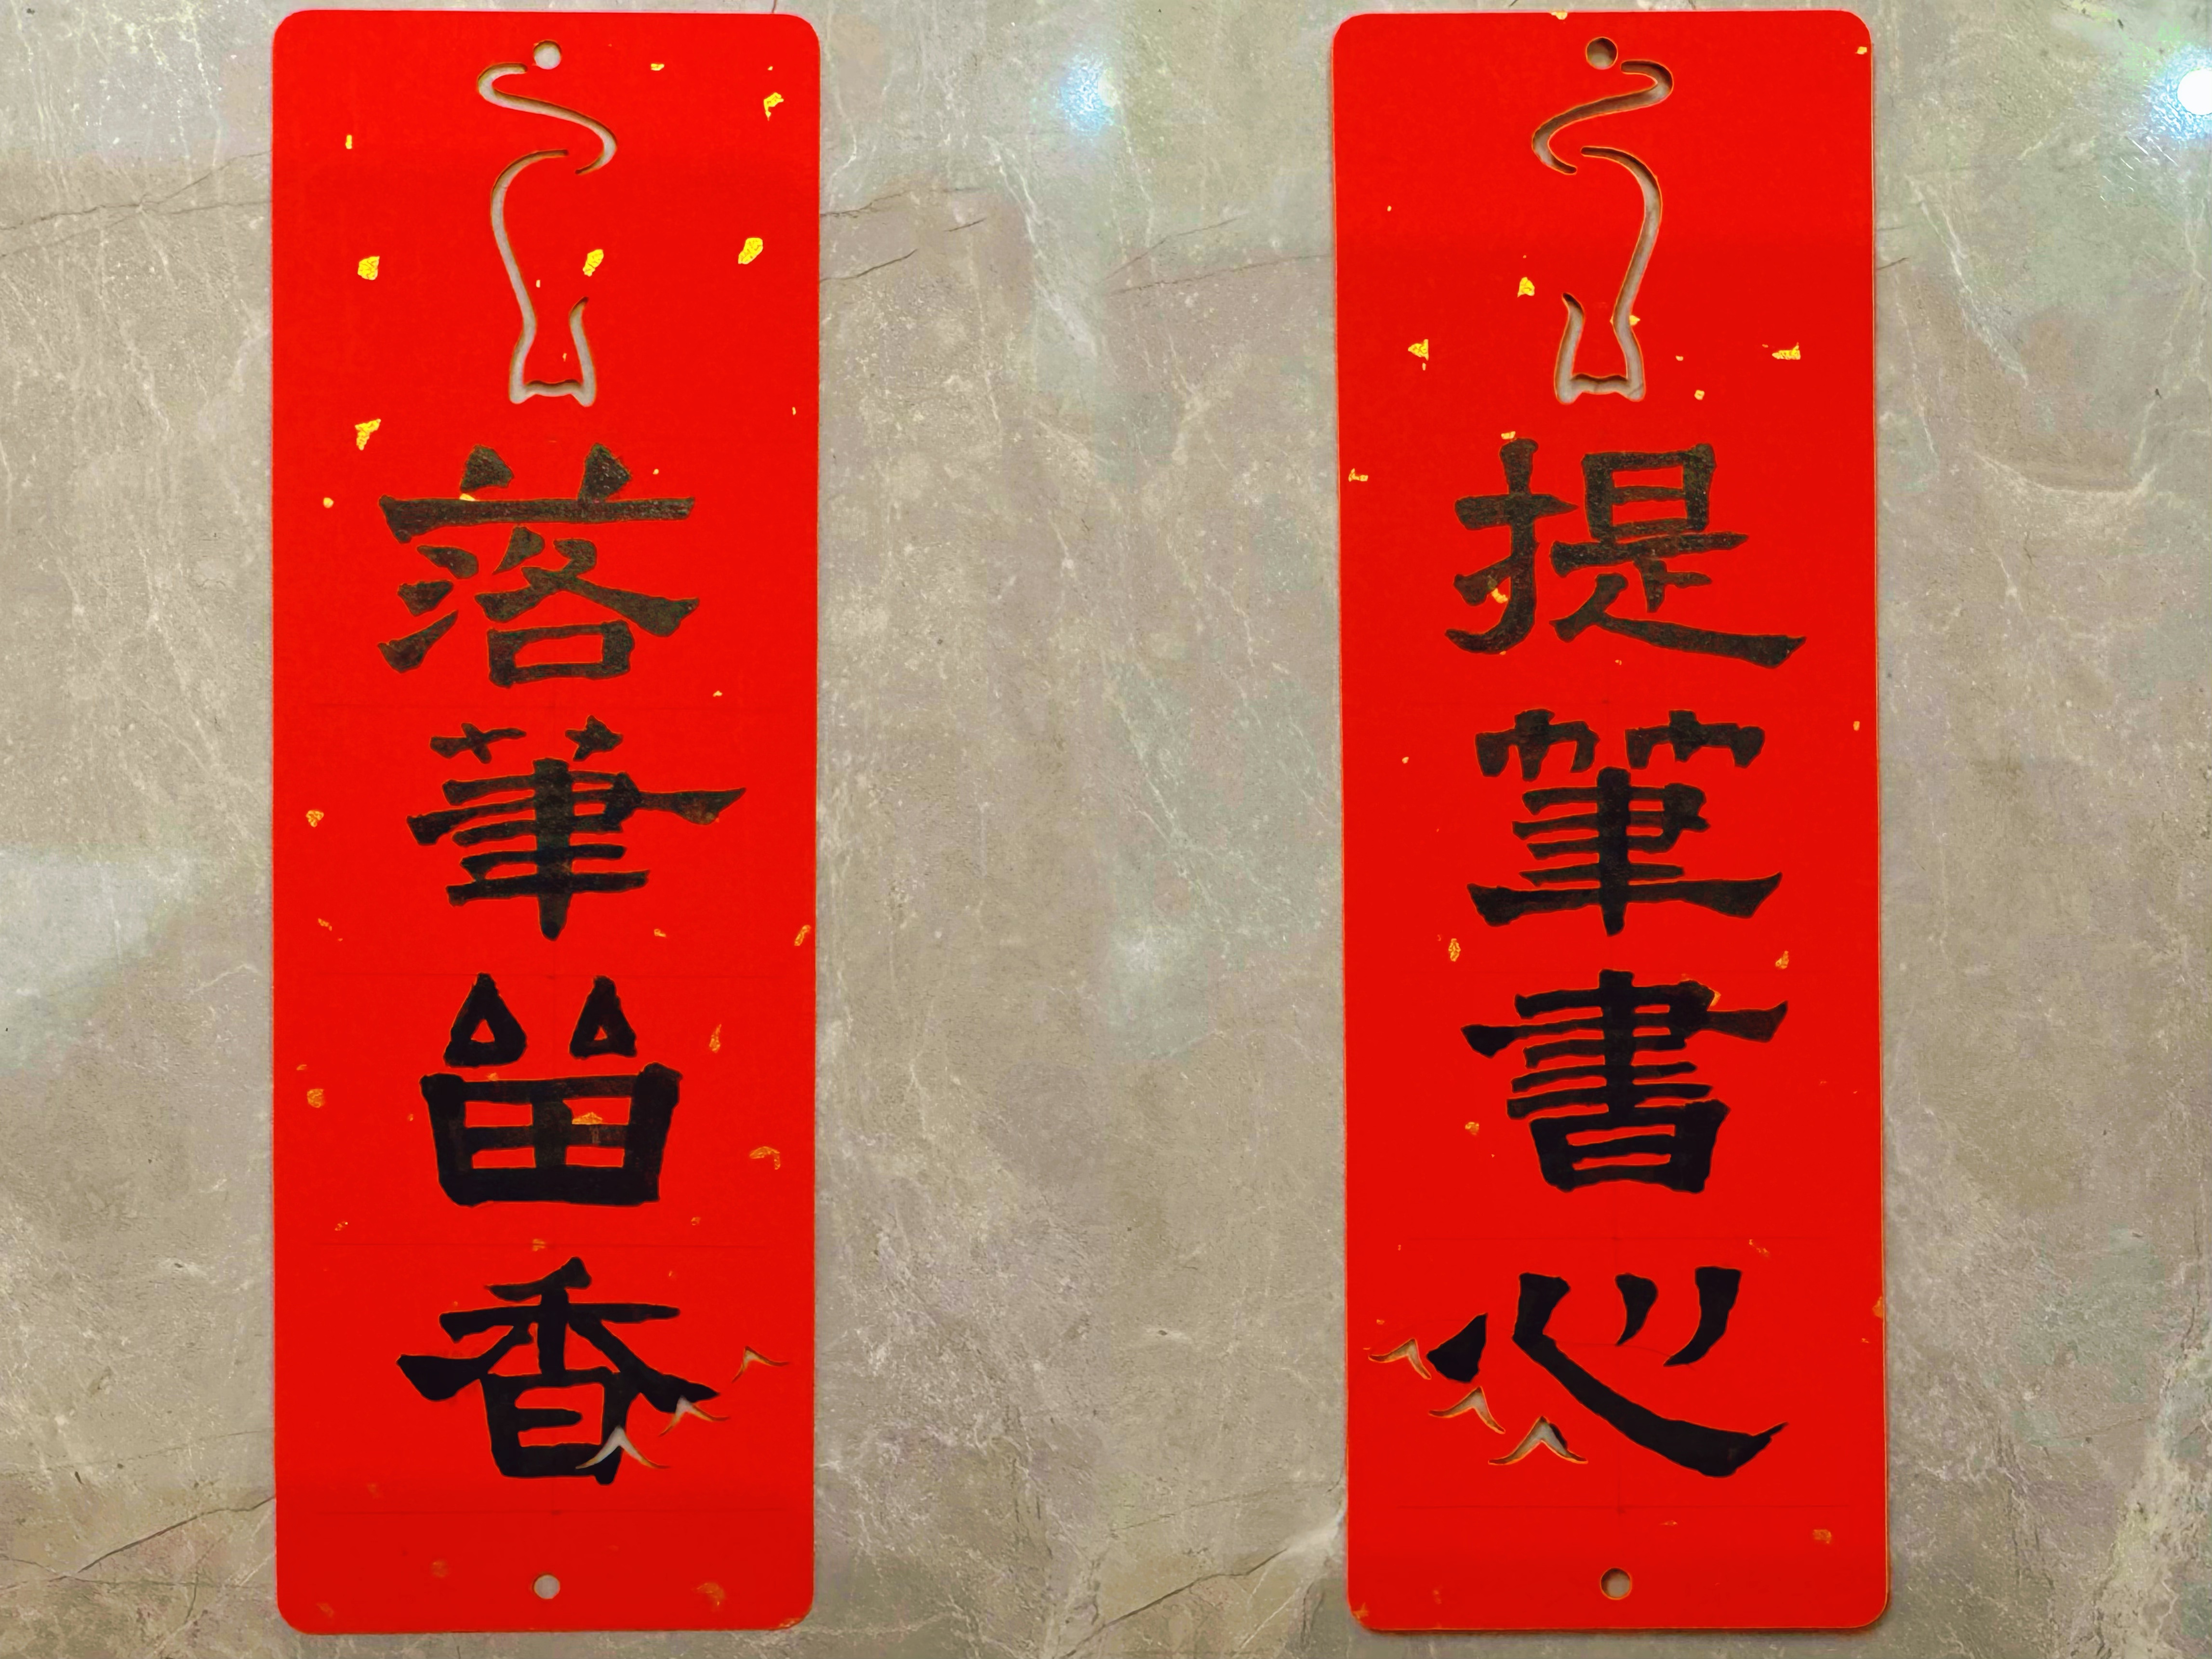 提筆書心
落筆留香